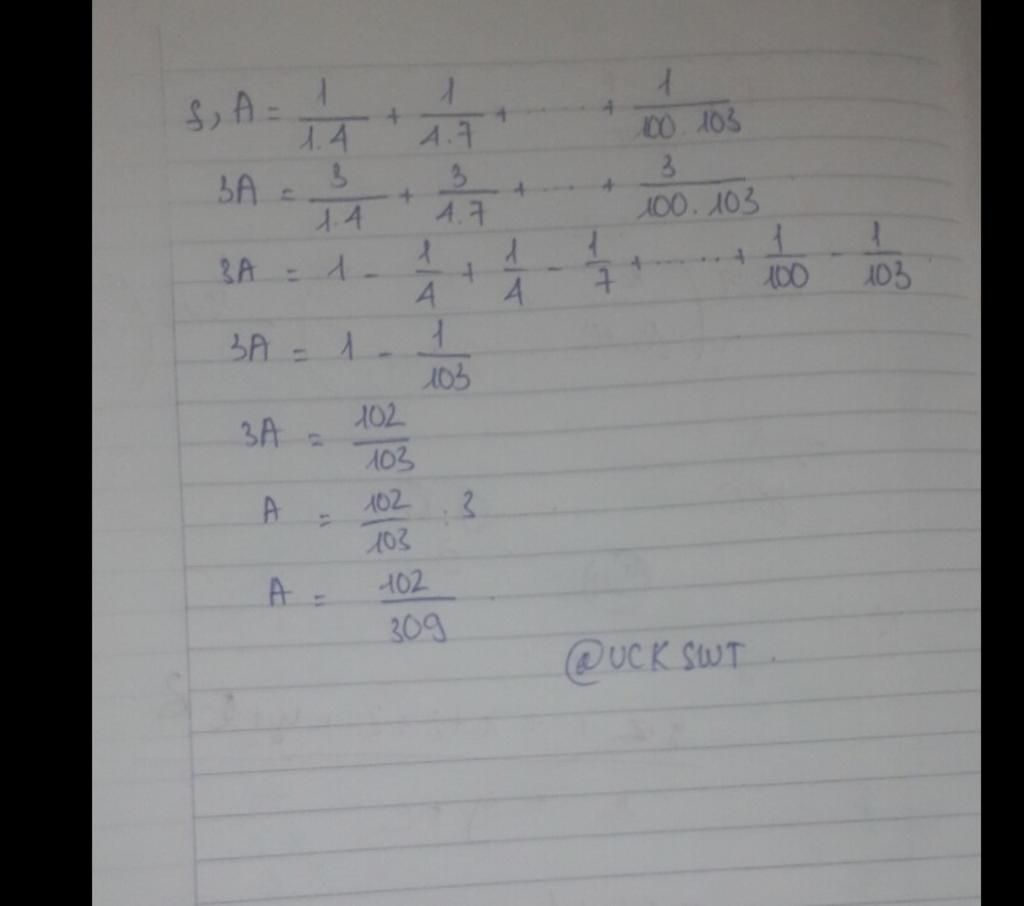 S, A = 1/1.4 + 1/4.7 + ..... + 1/100.103
3A = 3/1.4 + 3/4.7 + .... + 3/100.103
3A = 1 - 1/4 + 1/4 - 1/7 + ...... + 1/100 - 1/103
3A = 1 - 1/103
3A = 102/103
A = 102/103 : 3
A = 102/309.
@UCK SWT.